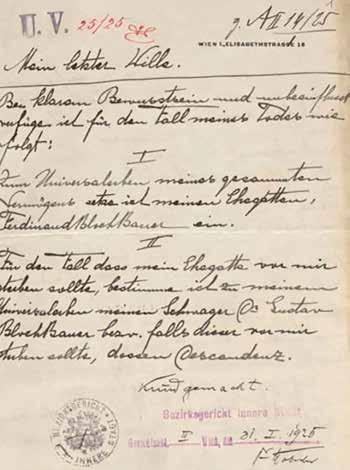 U. V. 25/25
g. A II 14/25
WIEN I., ELISABETHSTRASSE 18
Mein letzter Wille.
Bei klarem Bewusstsein und unbeeinflusst
verfüge ich für den Fall meines Todes wie
folgt:
I
Zum Universalerben meines gesammten
Vermögens setze ich meinen Ehegatten,
Ferdinand Bloch Bauer ein.
II
Für den Fall dass mein Ehegatte vor mir
sterben sollte, bestimme ich zu meinem
Universalerben meinen Schwager Dr Gustav
Bloch Bauer bezw. falls dieser vor mir
sterben sollte, dessen Descendenz.
Kundgemacht.
Bezirksgericht Innere Stadt
II Wien, am 31. I. 1925
BEZIRKSGERICHT INNERE STADT